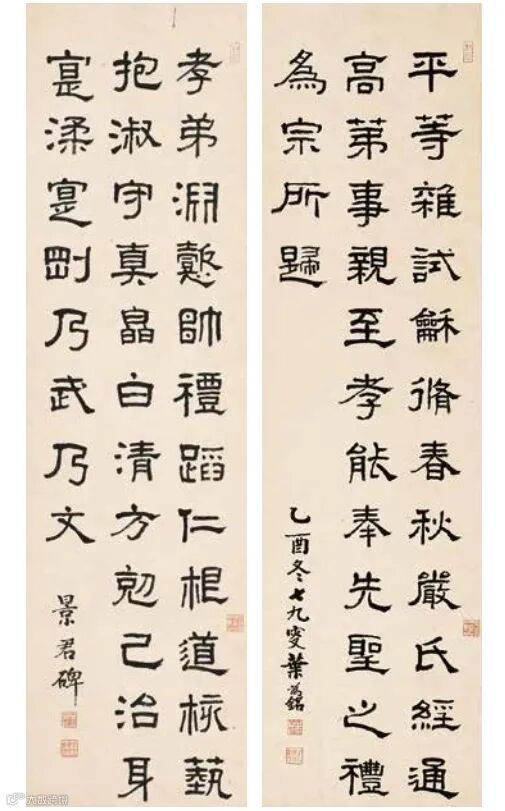 平等雜試龢脩春秋嚴氏經通
高第事親至孝能奉先聖之禮
為宗所歸
乙酉冬七九叟葉為銘
孝弟淵懿帥禮蹈仁根道核藝
抱淑守真皛白清方勀己治身
寔渘寔剛乃武乃文
景君碑